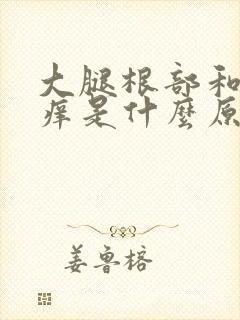 大腿根部和
痒是什麼原
姜鲁榕